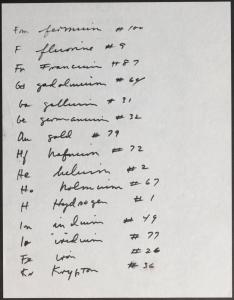 Fm fermium # 100
F fluorine # 9
Fr Francium # 87
Gd gadolinium # 64
Ga gallium # 31
Ge germanium # 32
Au gold # 79
Hf hafnium # 72
He helium # 2
Ho holmium # 67
H Hydrogen # 1
In indium # 49
Ir iridium # 77
Fe iron # 26
Kr Krypton # 36